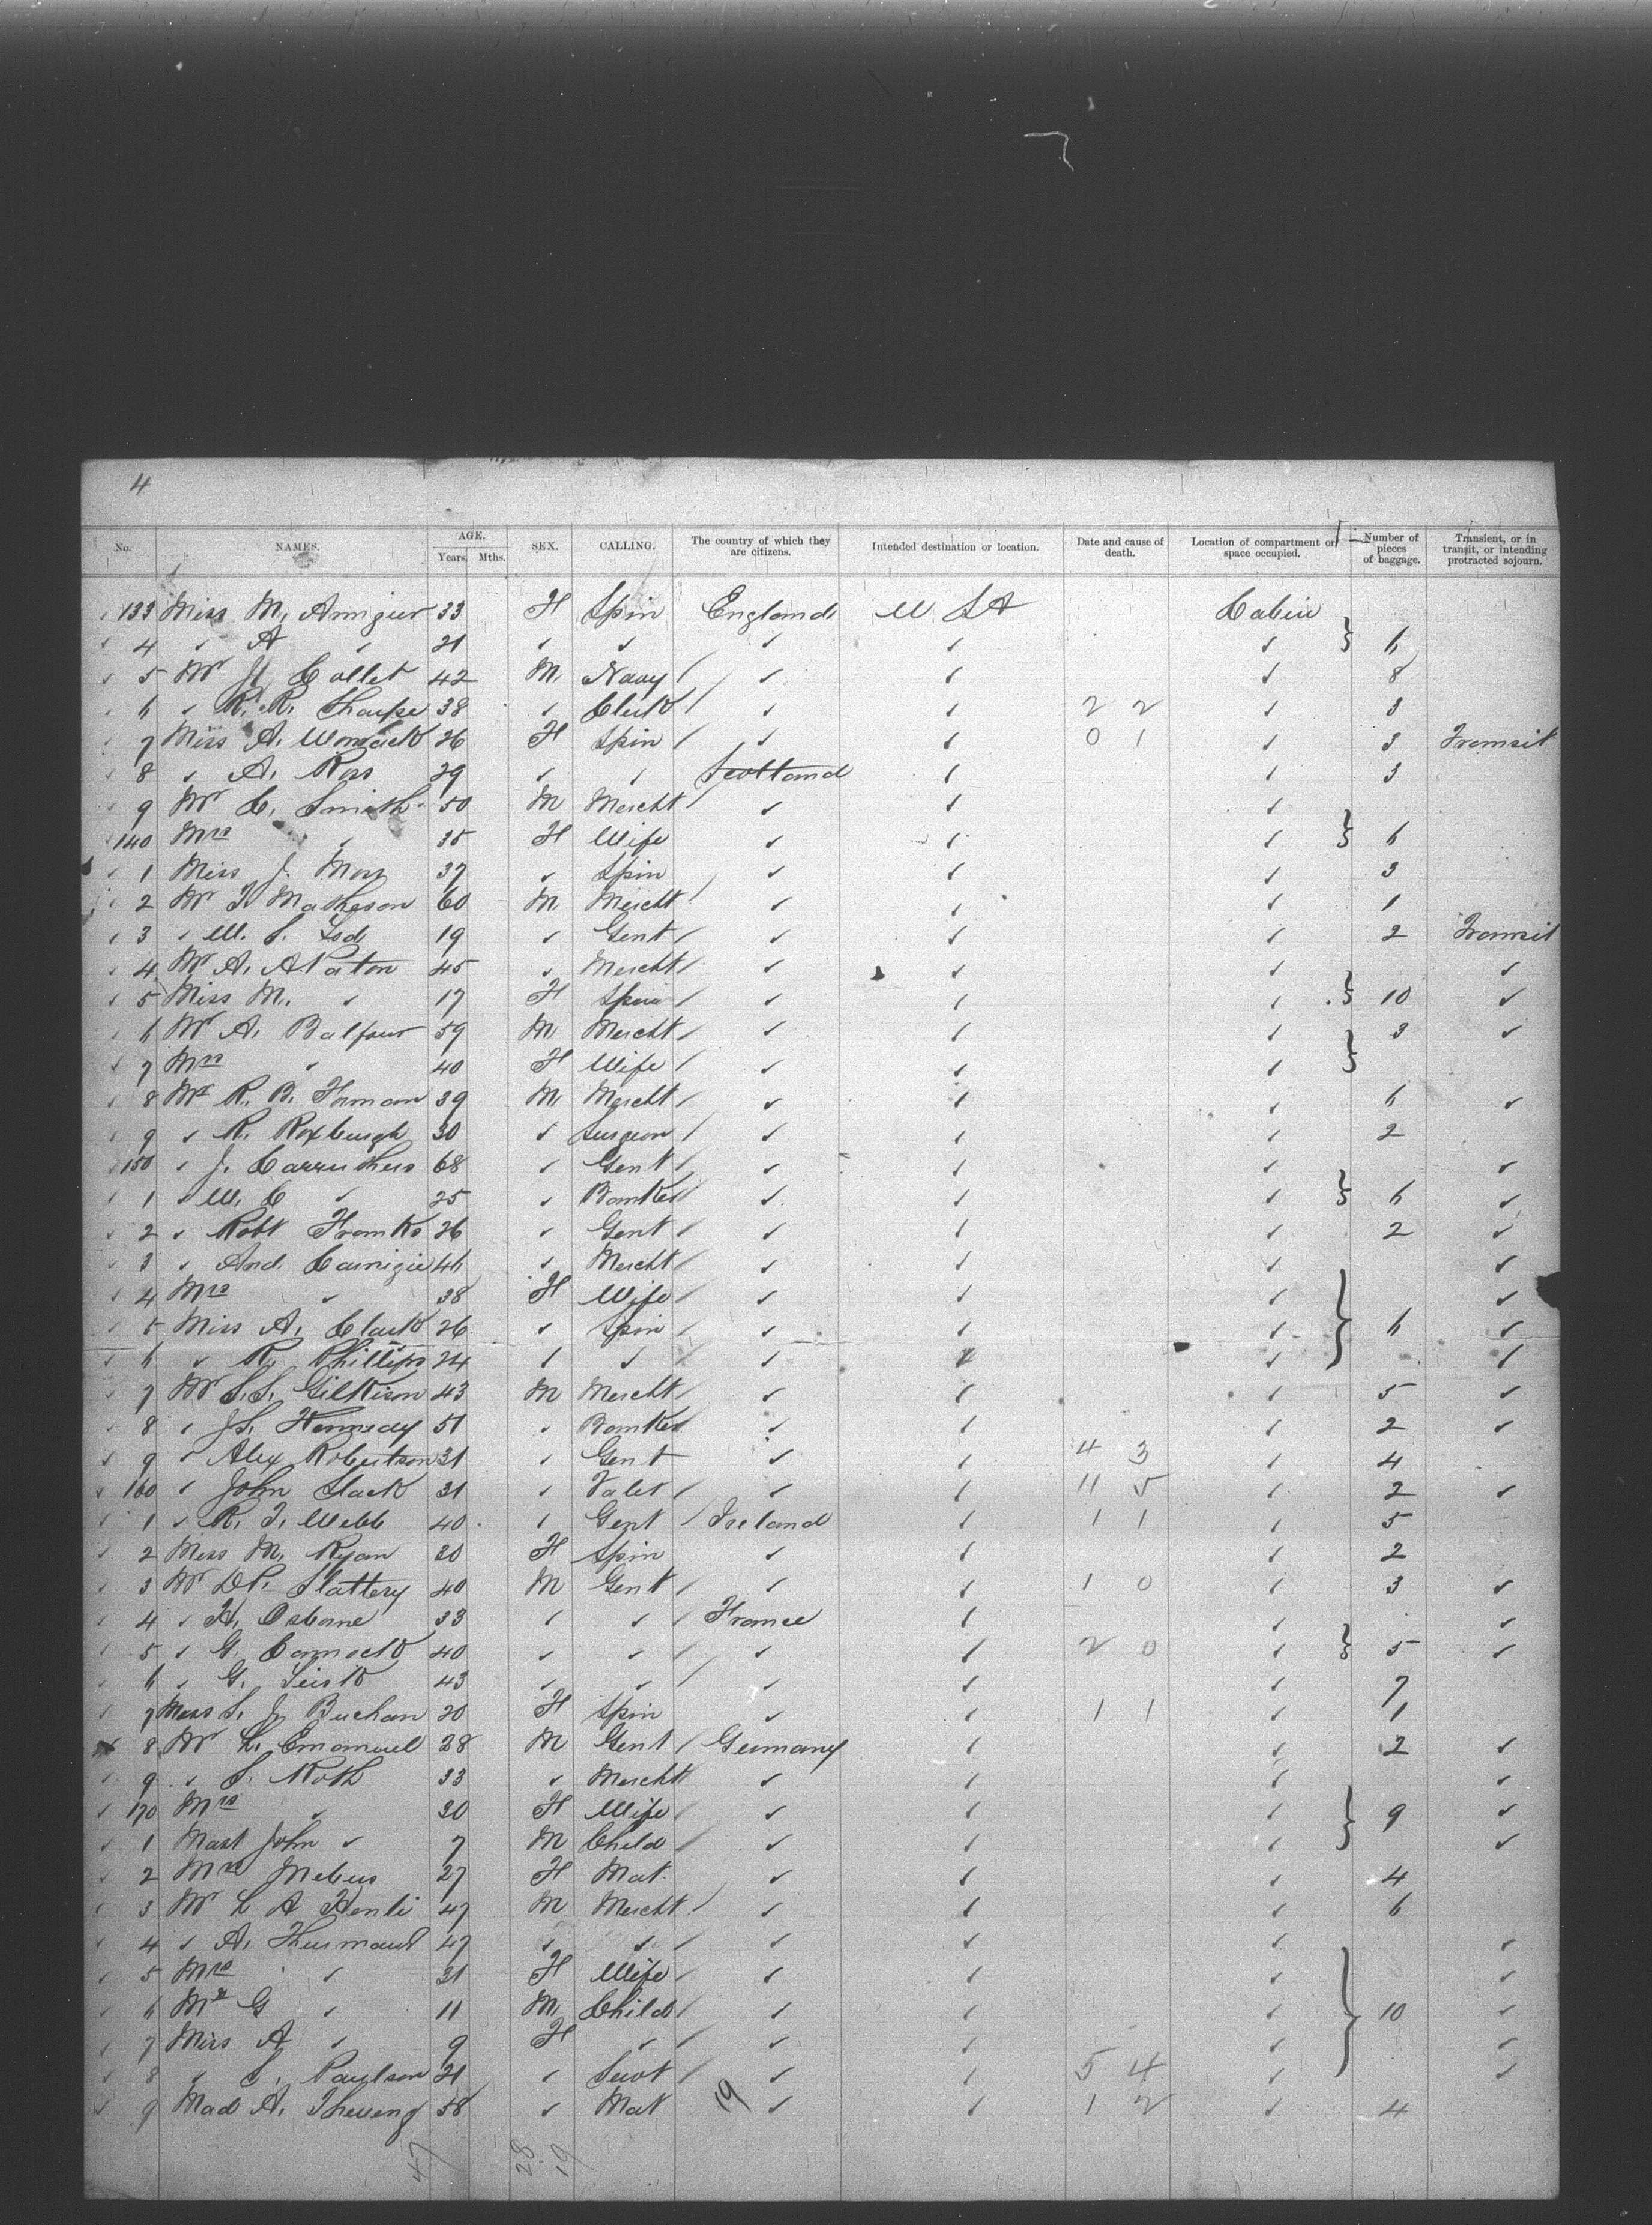 4
No. NAMES. AGE. Years. Mths. SEX. CALLING. The country of which they are citizens. Intended destination or location. Date and cause of death. Location of compartment or space occupied. Number of pieces of baggage. Transient, or in transit, or intending protracted sojourn.
133 Miss M. Armgier 33 F Spin England U.S.A Cabin
4 " A " 21 " " " " " } 6
5 Mr H Collet 42 M Navy " " " 8
6 " R. R. Sharpe 38 " Clerk " " 2 2 " 3
7 Miss A. Womack 26 F Spin " " 0 1 " 3 Transit
8 " A. Ross 29 " " Scotland " " 3
9 Mr C. Smith 50 M Mercht " " "
140 Mrs " 35 F Wife " " " } 6
1 Miss J. Moss 37 " Spin " " " 3
2 Mr T. Matheson 60 M Mercht " " " 1
3 " W. S. Tod 19 " Gent " " " 2 Transit
4 Mr A. A Paton 45 " Mercht " " " "
5 Miss M. " 17 F Spin " " " } 10 "
6 Mr A. Balfour 59 M Mercht " " " 3 "
7 Mrs " 40 F Wife " " " }
8 Mr R. B. Forman 39 M Mercht " " " 6 "
9 " R. Roxburgh 30 " Surgeon " " " 2
150 " J. Carruthers 68 " Gent " " " "
1 " W. C " 25 " Banker " " " } 6 "
2 " Robt Franks 26 " Gent " " " 2 "
3 " And. Carnigie 46 " Mercht " " " "
4 Mrs " 38 F Wife " " " "
5 Miss A. Clark 26 " Spin " " " } 6 "
6 " R. Phillips 24 " " " " " "
7 Mr S.S. Gilkison 43 M Mercht " " " 5 "
8 " J.S. Kennedy 51 " Banker " " " 2 "
9 " Alex Robertson 31 " Gent " " 4 3 " 4
160 " John Slack 31 " Valet " " 11 5 " 2 "
1 " R. T. Webb 40 " Gent Ireland " 1 1 " 5
2 Miss M. Ryan 20 F Spin " " " 2
3 Mr D.P. Slattery 40 M Gent " " 1 0 " 3 "
4 " H. Osborne 33 " " France " " "
5 " G. Cormack 40 " " " " 2 0 " } 5 "
6 " G. 43 " " " " " 7
7 Miss S. J. Buchan 20 F Spin " " 1 1 " 1
8 Mr L. Emanuel 28 M Gent Germany " " 2 "
9 " S. Roth 33 " Mercht " " " "
170 Mrs " 30 F Wife " " " } 9 "
1 Mast John " 7 M Child " " " "
2 Mrs Mebus 27 F Mat. " " " 4
3 Mr L A 47 M Mercht " " " 6
4 " A. 47 " " " " " "
5 Mrs " 31 F Wife " " " "
6 Mr G " 11 M Child " " " } 10 "
7 Miss A " 9 F " " " " "
8 " S. Paulson 21 " Servt " " 5 4 " "
9 Mad A. 58 " Mat 19 " " 1 2 " 4
47 28 19